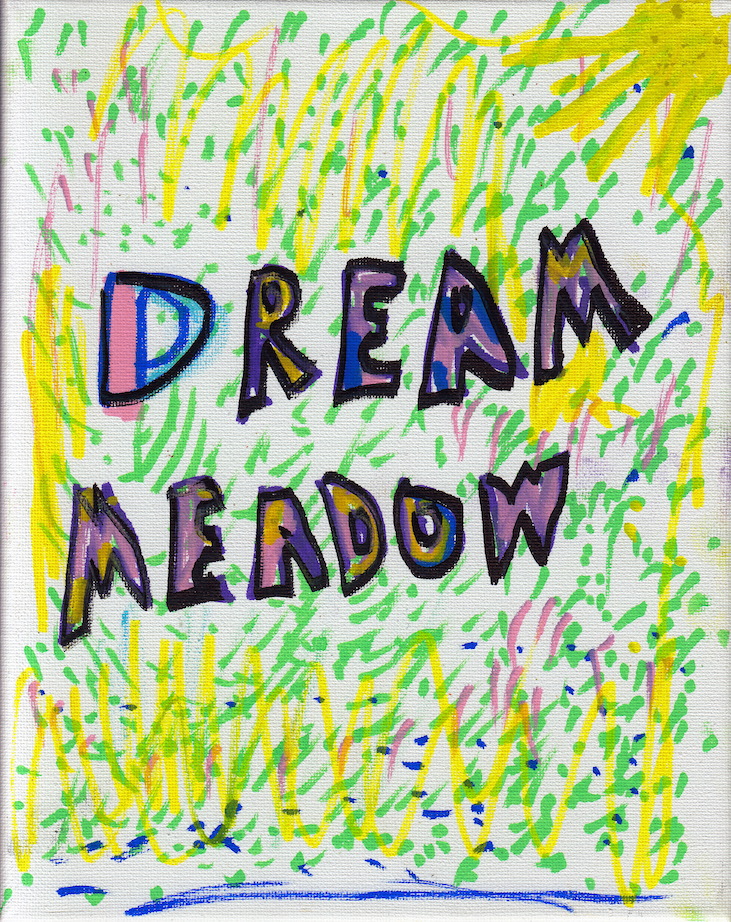 DREAM
MEADOW